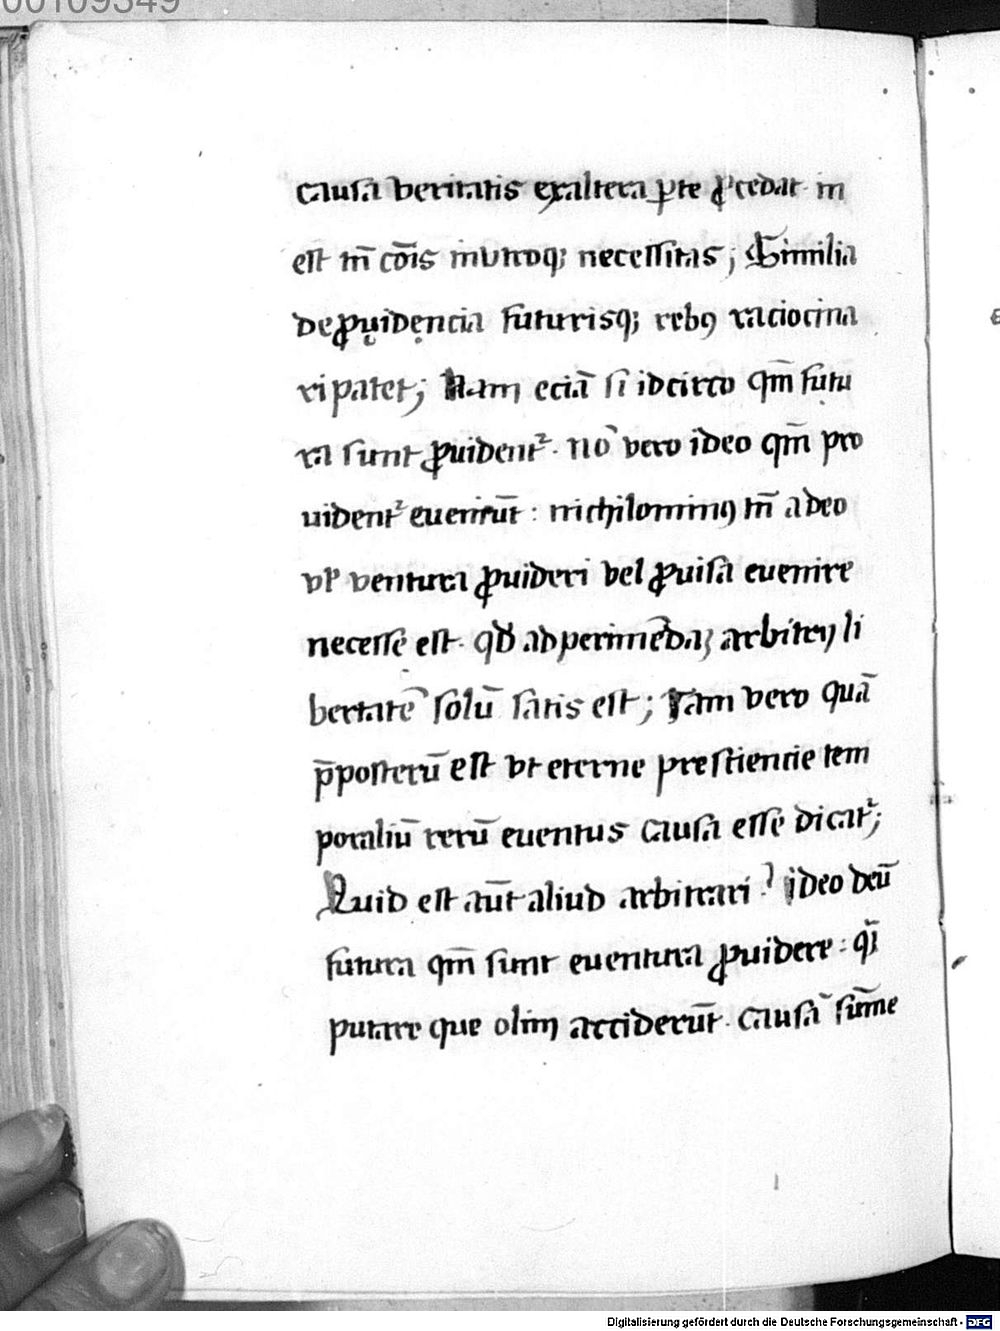 00109349
causa veritatis exaltera ꝑte ꝓcedat· in
est tñ cõis in vtroq; necessitas; Similia
de ꝓuidencia futurisq; rebꝰ raciocina
ri patet; Nam eciã si idcirco qm̃ futu
ra sunt ꝓuident᷑· nõ vero ideo qm̃ pro
uident᷑ eueniũt: nichilominꝰ tñ a deo
vl̓ ventura ꝓuideri vel ꝓuisa euenire
necesse est· qđ ad perimẽdaꝫ arbitrij li
bertatẽ solũ satis est; Iam vero quã
p̄posterũ est vt eterne prescientie tem
poraliũ rerũ euentus causa esse dicat᷑;
Quid est aũt aliud arbitrari? ideo deũ
futura qm̃ sunt euentura ꝓuidere: q̃j
putare que olim acciderũt· causã sũme
Digitalisierung gefördert durch die Deutsche Forschungsgemeinschaft - DFG